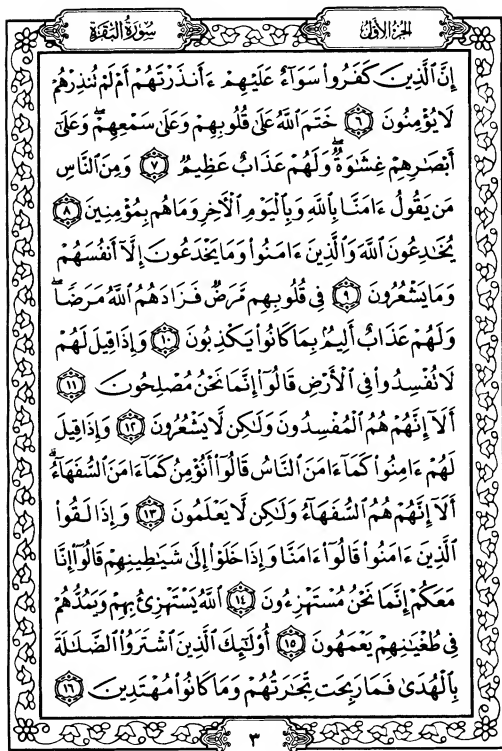 سُورَةُ البَقَرَةِ الجُزْءُ الأَوَّلُ
إِنَّ ٱلَّذِينَ كَفَرُوا۟ سَوَآءٌ عَلَيْهِمْ ءَأَنذَرْتَهُمْ أَمْ لَمْ تُنذِرْهُمْ
لَا يُؤْمِنُونَ ٦ خَتَمَ ٱللَّهُ عَلَىٰ قُلُوبِهِمْ وَعَلَىٰ سَمْعِهِمْ ۖ وَعَلَىٰٓ
أَبْصَـٰرِهِمْ غِشَـٰوَةٌ ۖ وَلَهُمْ عَذَابٌ عَظِيمٌ ٧ وَمِنَ ٱلنَّاسِ
مَن يَقُولُ ءَامَنَّا بِٱللَّهِ وَبِٱلْيَوْمِ ٱلْـَٔاخِرِ وَمَا هُم بِمُؤْمِنِينَ ٨
يُخَـٰدِعُونَ ٱللَّهَ وَٱلَّذِينَ ءَامَنُوا۟ وَمَا يَخْدَعُونَ إِلَّآ أَنفُسَهُمْ
وَمَا يَشْعُرُونَ ٩ فِى قُلُوبِهِم مَّرَضٌ فَزَادَهُمُ ٱللَّهُ مَرَضًا ۖ
وَلَهُمْ عَذَابٌ أَلِيمٌۢ بِمَا كَانُوا۟ يَكْذِبُونَ ١٠ وَإِذَا قِيلَ لَهُمْ
لَا تُفْسِدُوا۟ فِى ٱلْأَرْضِ قَالُوٓا۟ إِنَّمَا نَحْنُ مُصْلِحُونَ ١١
أَلَآ إِنَّهُمْ هُمُ ٱلْمُفْسِدُونَ وَلَـٰكِن لَّا يَشْعُرُونَ ١٢ وَإِذَا قِيلَ
لَهُمْ ءَامِنُوا۟ كَمَآ ءَامَنَ ٱلنَّاسُ قَالُوٓا۟ أَنُؤْمِنُ كَمَآ ءَامَنَ ٱلسُّفَهَآءُ ۗ
أَلَآ إِنَّهُمْ هُمُ ٱلسُّفَهَآءُ وَلَـٰكِن لَّا يَعْلَمُونَ ١٣ وَإِذَا لَقُوا۟
ٱلَّذِينَ ءَامَنُوا۟ قَالُوٓا۟ ءَامَنَّا وَإِذَا خَلَوْا۟ إِلَىٰ شَيَـٰطِينِهِمْ قَالُوٓا۟ إِنَّا
مَعَكُمْ إِنَّمَا نَحْنُ مُسْتَهْزِءُونَ ١٤ ٱللَّهُ يَسْتَهْزِئُ بِهِمْ وَيَمُدُّهُمْ
فِى طُغْيَـٰنِهِمْ يَعْمَهُونَ ١٥ أُو۟لَـٰٓئِكَ ٱلَّذِينَ ٱشْتَرَوُا۟ ٱلضَّلَـٰلَةَ
بِٱلْهُدَىٰ فَمَا رَبِحَت تِّجَـٰرَتُهُمْ وَمَا كَانُوا۟ مُهْتَدِينَ ١٦
٣